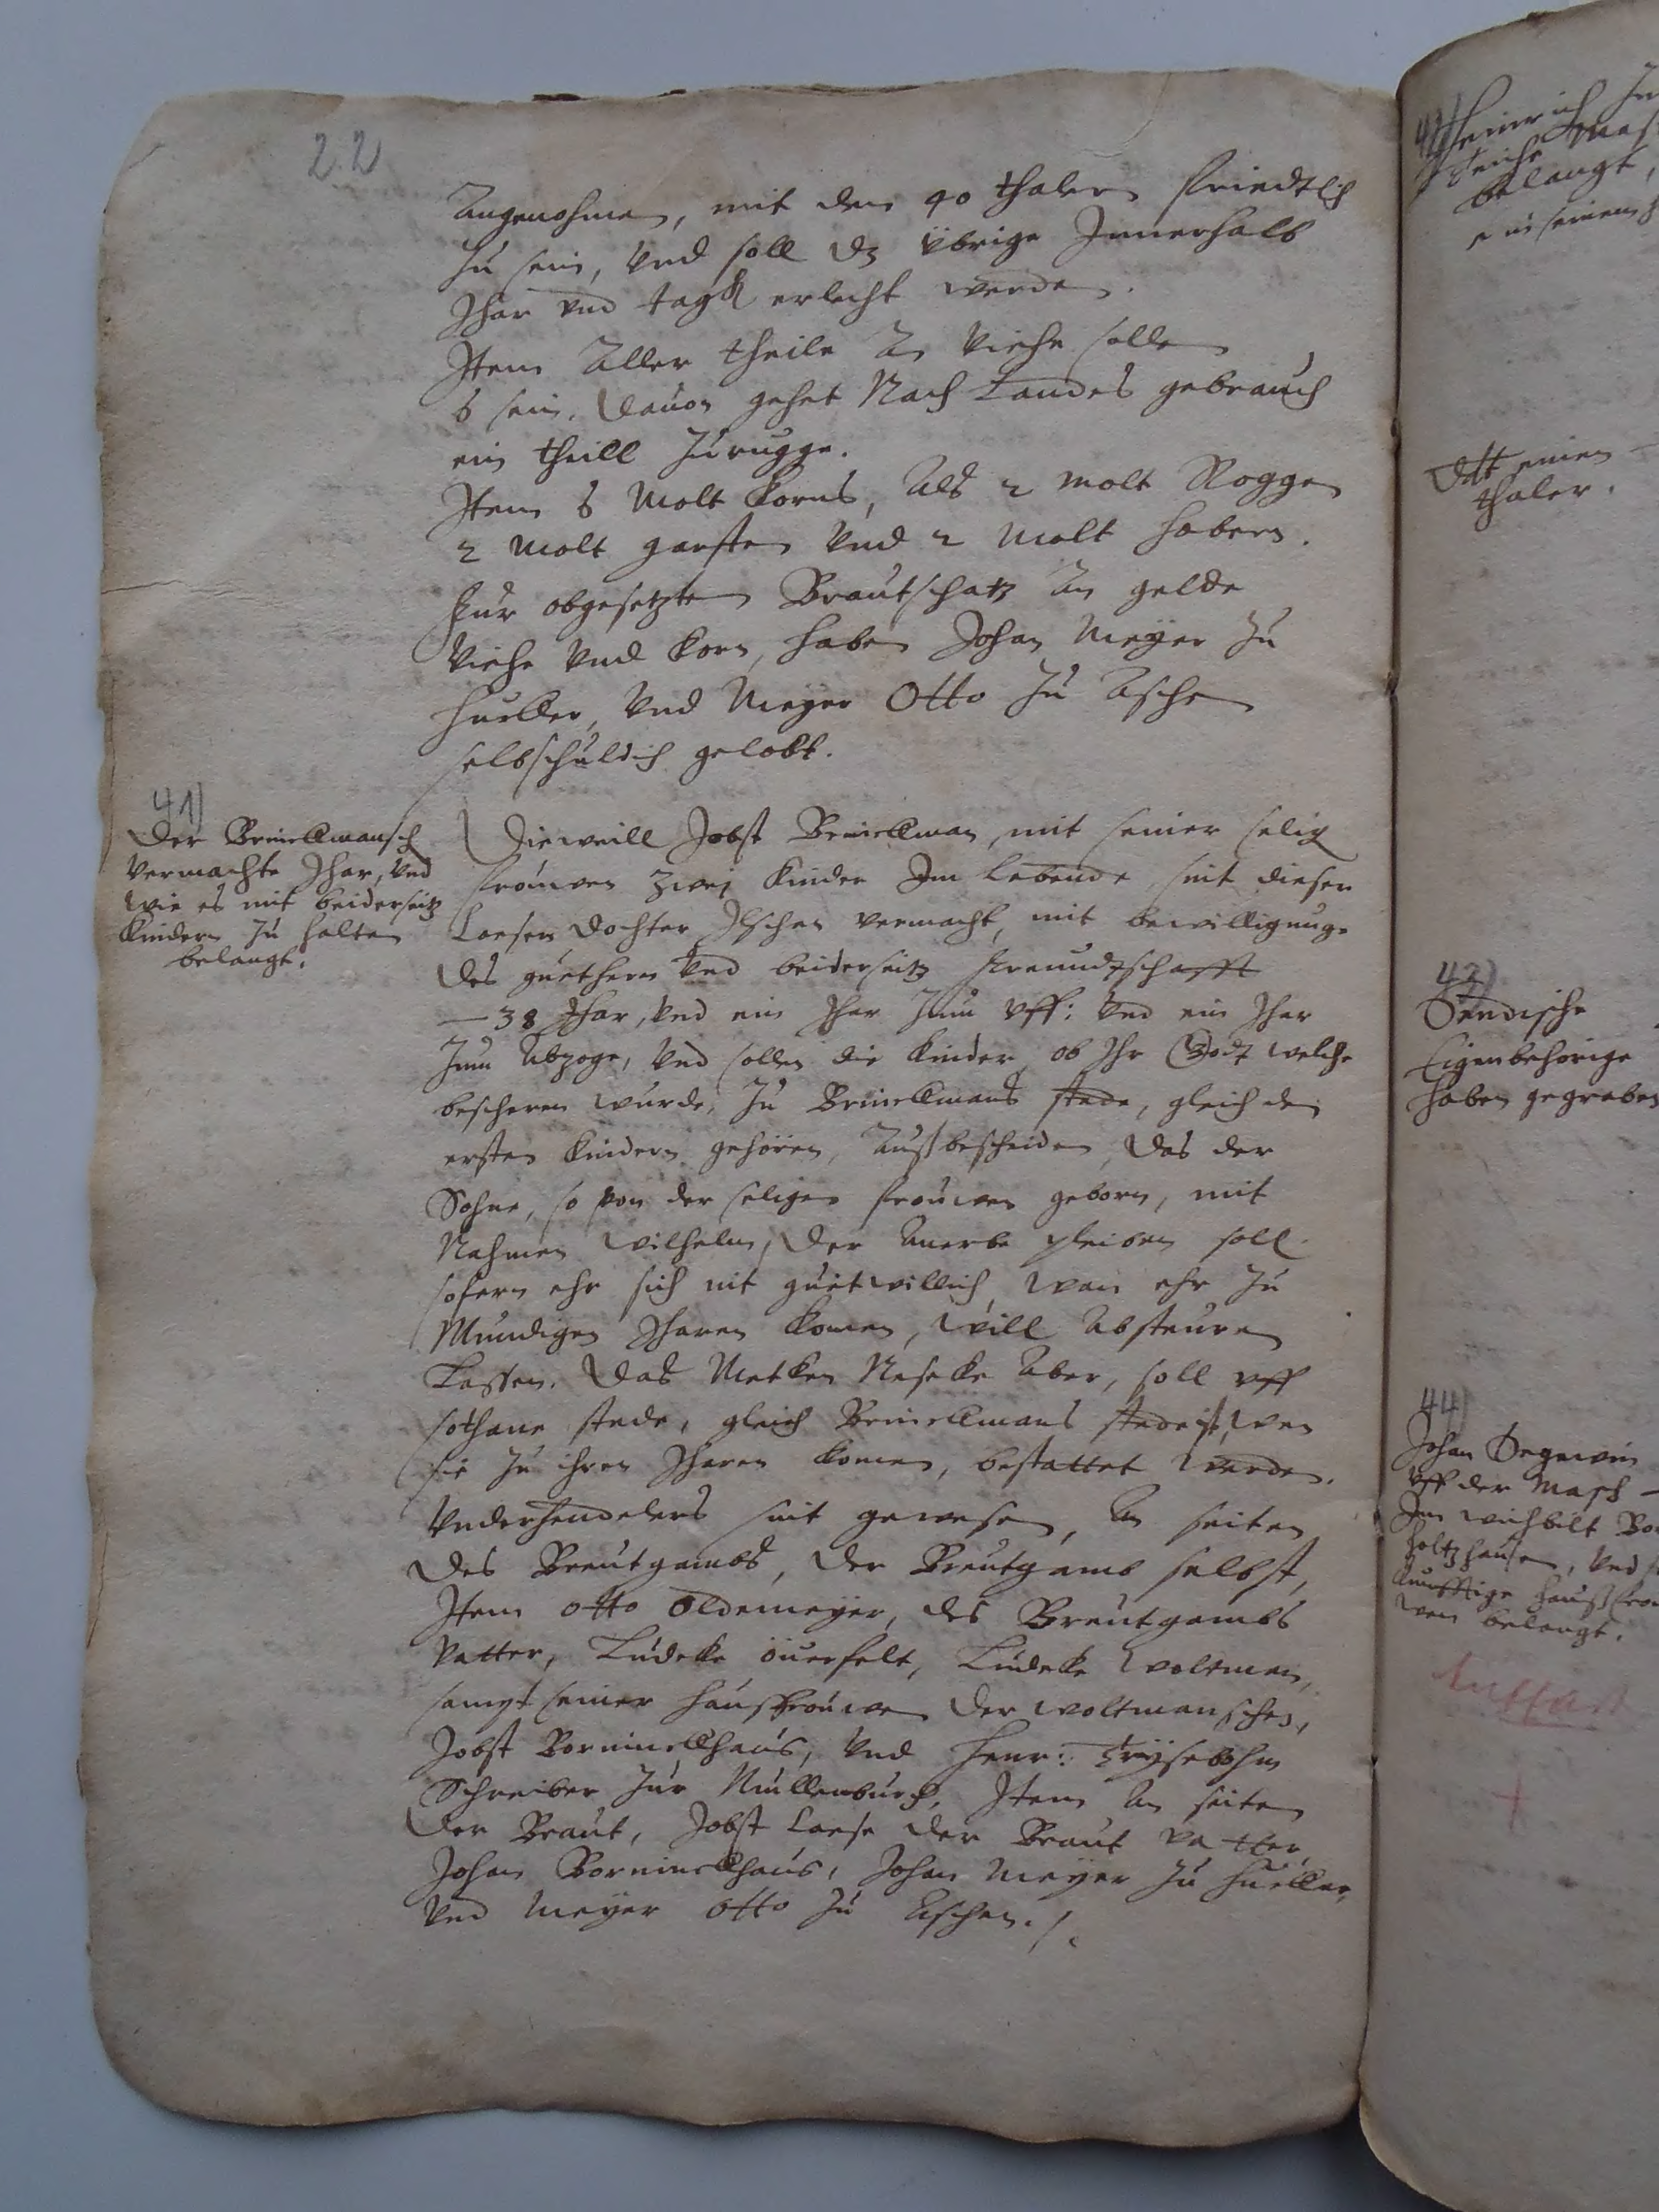 22
Angenohmen, mit den 40 thalern friedtlich
zu sein, vnd soll dz vbrige Jnnerhalb
Jhar vnd tagk erlecht werden.
Jtem Aller theile An viehe sollen
6 sein. dauon gehet Nach Landes gebrauch
ein theill Zurugge.
Jtem 6 Molt Korns, Als 2 molt Roggen
2 Molt garsten vnd 2 Molt habern.
Fur obgesetzten Brautschatz An gelde
viehe vnd Korn, haben Johan Meyer zu
Hueller, vnd Meyer Otto zu Aschen
selbschuldich gelobt.
41)
Der Brinellmansch
vermachte Jhar, vnd
wie es mit beiderseitz
Kindern zu halten
belangt.
Dieweill Jobst Brinellman, mit seiner selig
frouwen zwej Kinder Jm Lebende, sint dieser
Loesen dochter Jlschen vermacht, mit bewilligunge
des guetherrn vnd beiderseitz freundtschafft
38 Jhar, vnd ein Jhar Zum vff: vnd ein Jhar
Zum Abzoge, vnd sollen die Kinder, ob Jhr Godt welche
bescheren wurde, zu Brinellmans stede, gleich den
ersten Kindern gehören, Außbescheiden, das der
Sohne, so von der seligen frouwen geborn, mit
Nahmen Wilhelm, der Anerbe pleiben soll
sofern ehr sich nit guetwillich, wan ehr zu
Mundigen Jharen Komen, will Absteuren
Lassen. Das Metken Neseke Aber, soll vff
sothane stede, gleich Brinellmans stede ist, wen
sie zu ihren Jharen Komen, bestattet werden.
Vnderhendelers sint gewesen, An seiten
des Breutgambs, der Breutgamb selbst,
Jtem Otto Oldemeyer, des Breutgambs
vatter, Ludeke ouerfelt, Ludeke woltman,
sampt seiner haußfrouwen der woltmanschen,
Jobst Borninckhaus, vnd Henr:
Schreiber zur Mullenburg, Jtem An seiten
der Braut, Jobst Loese der Braut vatter
Johan Borninckhaus, Johan Meyer zu Hueller,
vnd Meyer Otto zu Aschen.
Heinrich
belangt,
Dtt einen
thaler.
43)
Eigenbehörige
haben gegraben
44)
Johan Degewin
vff der Masch
Jm wichbelt
holtzhausen, vnd
Kunfftige haußfrou
wen belangt.